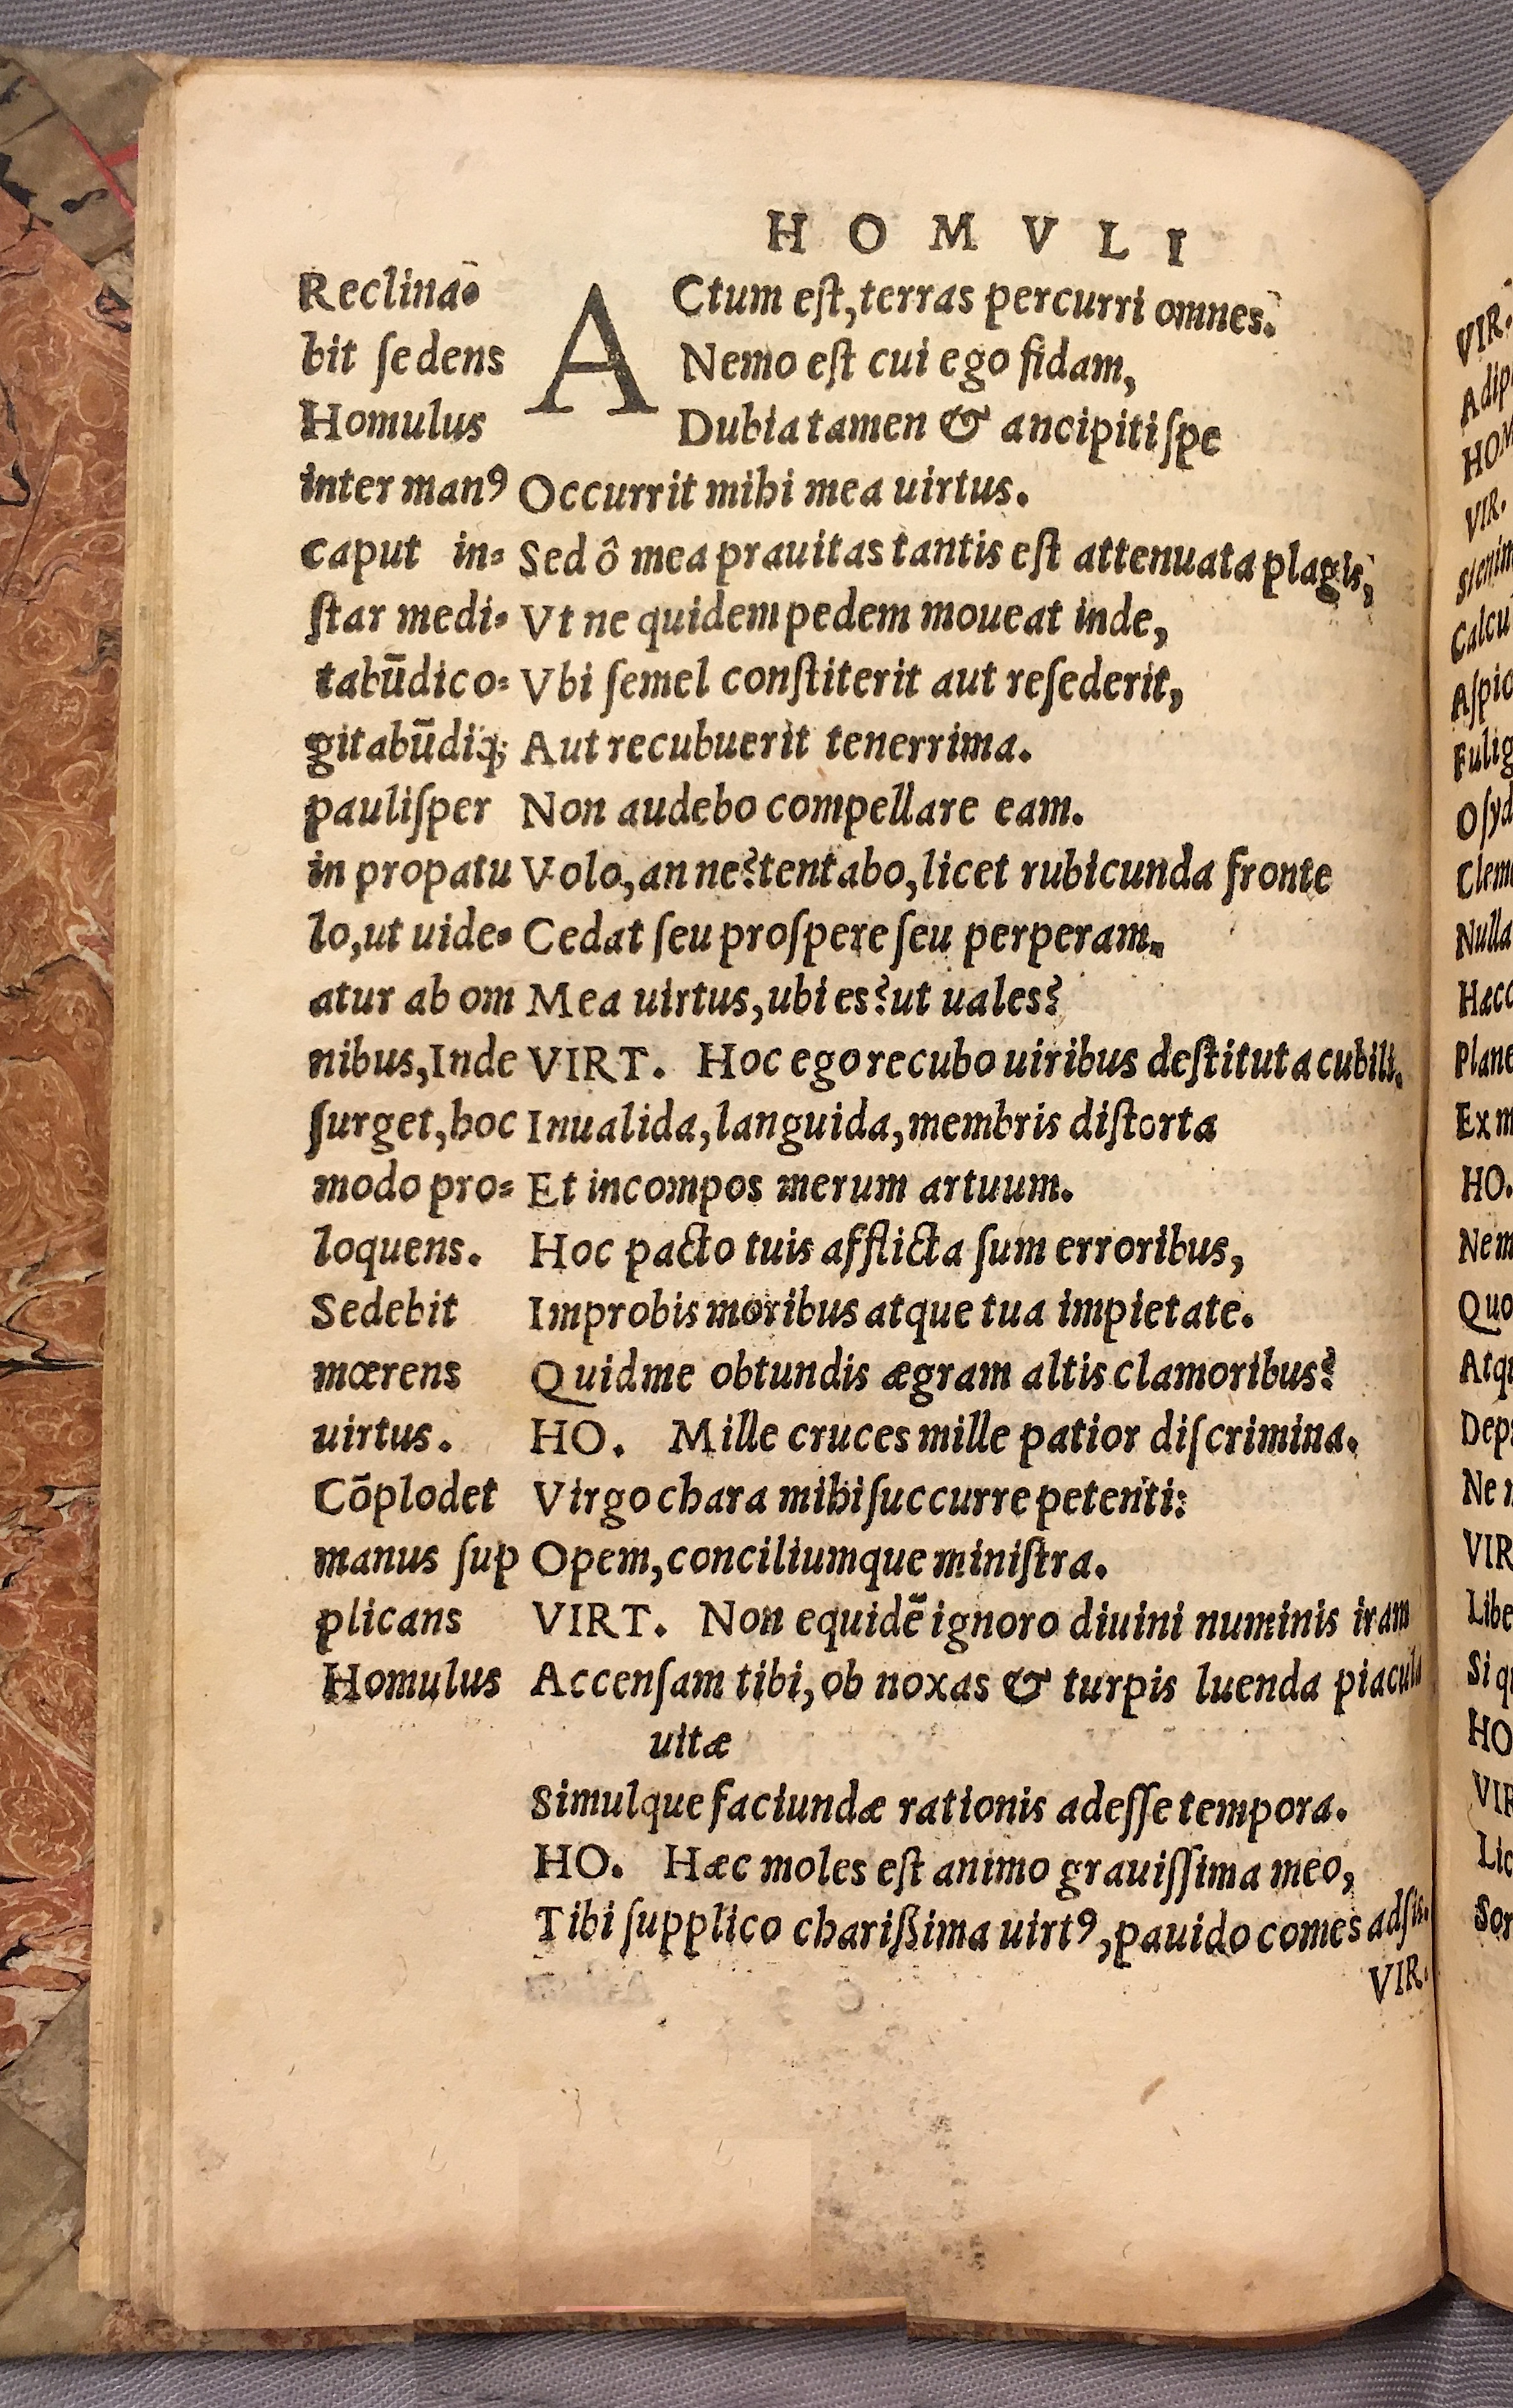 HOMVLI
Reclina-
bit ſedens
Homulus
inter manꝰ
caput in-
ſtar medi-
tabūdi co-
gitabūdiq;
pauliſper
in propatu
lo, ut uide-
atur ab om
nibus, Inde
ſurget, hoc
modo pro-
loquens.
Sedebit
mœrens
uirtus.
Cōplodet
manus ſup
plicans
Homulus
ACtum eſt, terras percurri omnes.
Nemo eſt cui ego fidam,
Dubia tamen & ancipiti ſpe
Occurrit mihi mea uirtus.
Sed ô mea prauitas tantis eſt attenuata plagis,
Vt ne quidem pedem moueat inde,
Vbi ſemel conſtiterit aut reſederit,
Aut recubuerit tenerrima.
Non audebo compellare eam.
Volo, an ne? tentabo, licet rubicunda fronte
Cedat ſeu proſpere ſeu perperam.
Mea uirtus, ubi es? ut uales?
VIRT. Hoc ego recubo uiribus deſtituta cubili.
Inualida, languida, membris diſtorta
Et incompos merum artuum.
Hoc pacto tuis afflicta ſum erroribus,
Improbis moribus atque tua impietate.
Quid me obtundis ægram altis clamoribus?
HO. Mille cruces mille patior diſcrimina.
Virgo chara mihi ſuccurre petenti:
Opem, conciliumque miniſtra.
VIRT. Non equidē ignoro diuini numinis iram
Accenſam tibi, ob noxas & turpis luenda piacula
uitæ
Simulque faciundæ rationis adeſſe tempora.
HO. Hæc moles eſt animo grauiſſima meo,
Tibi ſupplico charißima uirtꝰ, pauido comes adſis.
VIR.
VIR.
HO.
VIR.
HO.
VIR
HO
VIR